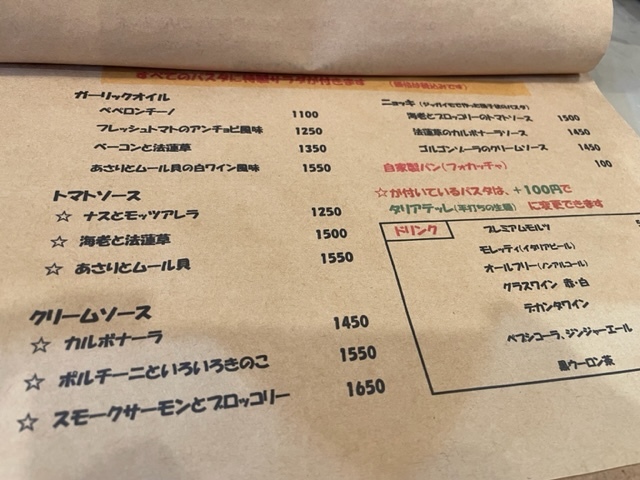 すべてのパスタに特製サラダが付きます （価格は税込みです）
ガーリックオイル
ペペロンチーノ 1100
フレッシュトマトのアンチョビ風味 1250
ベーコンと法蓮草 1350
あさりとムール貝の白ワイン風味 1550
トマトソース
☆ ナスとモッツアレラ 1250
☆ 海老と法蓮草 1500
☆ あさりとムール貝 1550
クリームソース
☆ カルボナーラ 1450
☆ ポルチーニといろいろきのこ 1550
☆ スモークサーモンとブロッコリー 1650
ニョッキ（ジャガイモで作った団子状のパスタ）
海老とブロッコリーのトマトソース 1500
法蓮草のカルボナーラソース 1450
ゴルゴンゾーラのクリームソース 1450
自家製パン（フォカッチャ） 100
☆が付いているパスタは、+100円で
タリアテッレ（平打ちの生麺） に変更できます
ドリンク
プレミアムモルツ
モレッティ（イタリアビール）
オールフリー（ノンアルコール）
グラスワイン 赤・白
デカンタワイン
ペプシコーラ、ジンジャーエール
黒ウーロン茶